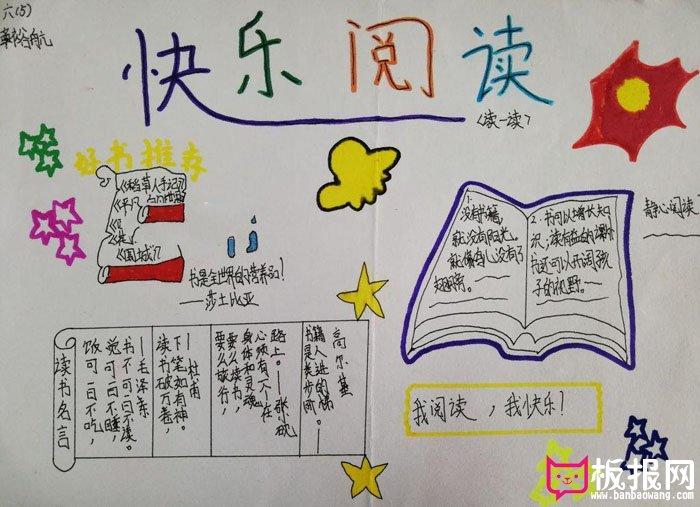 六(5)
快乐阅读
〈读一读〉
好书推荐
《稻草人手记》
《围城》
书是全世界的营养品!
——莎士比亚
读书名言
饭可一日不吃，
觉可一日不睡，
书不可一日不读。
—毛泽东
读书破万卷，
下笔如有神。
—杜甫
要么旅行，
要么读书，
身体和灵魂
必须有一个在
路上。——张
书籍是人类进步的阶梯。——
高尔基
1.
没有书籍，
就没有阳光，
就像 没有了
2. 书可以增长知
识，读有益的课外
书还可以开阔孩
子的视野。
静心阅读
我阅读，我快乐!
板报网
www.banbaowang.com